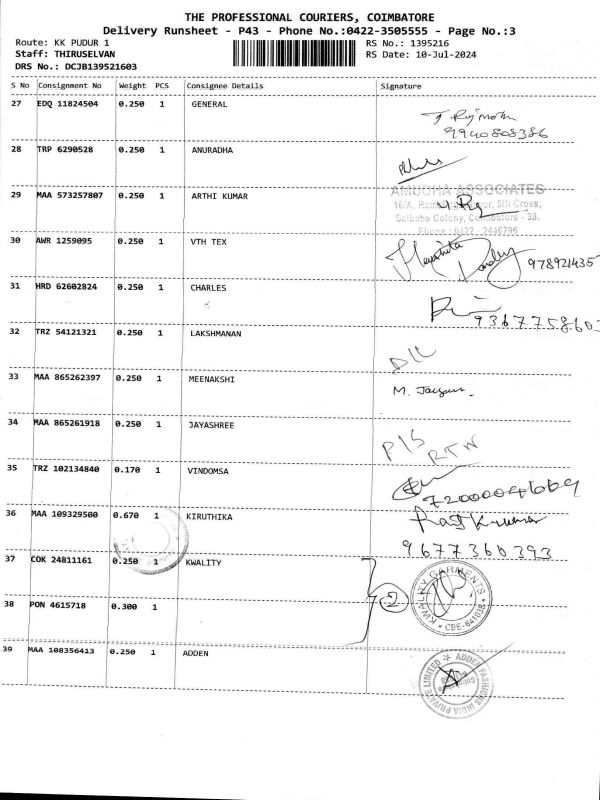 THE PROFESSIONAL COURIERS, COIMBATORE
Delivery Runsheet - P43 - Phone No.:0422-3505555 - Page No.:3
Route: KK PUDUR 1 RS No.: 1395216
Staff: THIRUSELVAN RS Date: 10-Jul-2024
DRS No.: DCJB139521603
S No Consignment No Weight PCS Consignee Details Signature
27 EDQ 11824504 0.250 1 GENERAL
9940808386
28 TRP 6290528 0.250 1 ANURADHA
AMUDHA ASSOCIATES
29 MAA 573257807 0.250 1 ARTHI KUMAR
16/A, 5th Cross,
Saibaba Colony, Coimbatore - 38.
Phone : 0422 2446796
30 AWR 1259095 0.250 1 VTH TEX
978921435
31 HRD 62602824 0.250 1 CHARLES
9367758603
32 TRZ 54121321 0.250 1 LAKSHMANAN
D/L
33 MAA 865262397 0.250 1 MEENAKSHI
M.
34 MAA 865261918 0.250 1 JAYASHREE
P/S
RTN
35 TRZ 102134840 0.170 1 VINDOMSA
7200004669
36 MAA 109329500 0.670 1 KIRUTHIKA
Raj Kumar
9677360393
37 COK 24811161 0.250 1 KWALITY
KWALITY GARMENTS
CBE-641038
2
38 PON 4615718 0.300 1
39 MAA 108356413 0.250 1 ADDEN
ADDEN FASHIONS INDIA PRIVATE LIMITED